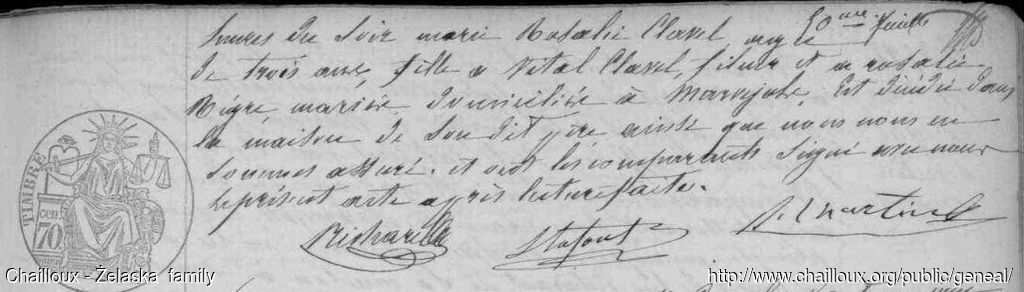 50me feuille
heures du soir marie Rosalie Clavel agée
de trois ans, fille a Vital Clavel, fileur et a rosalie
Nègre, mariés, domiciliés à Marvejols, Est décédée dans
la maison de son dit père ainsi que nous nous en
sommes assuré. et ont les comparants signé avec nous
le présent acte après lecture faite.
TIMBRE
70 cen
Richard
Lafont
Chailloux - Żelaska family
http://www.chailloux.org/public/geneal/